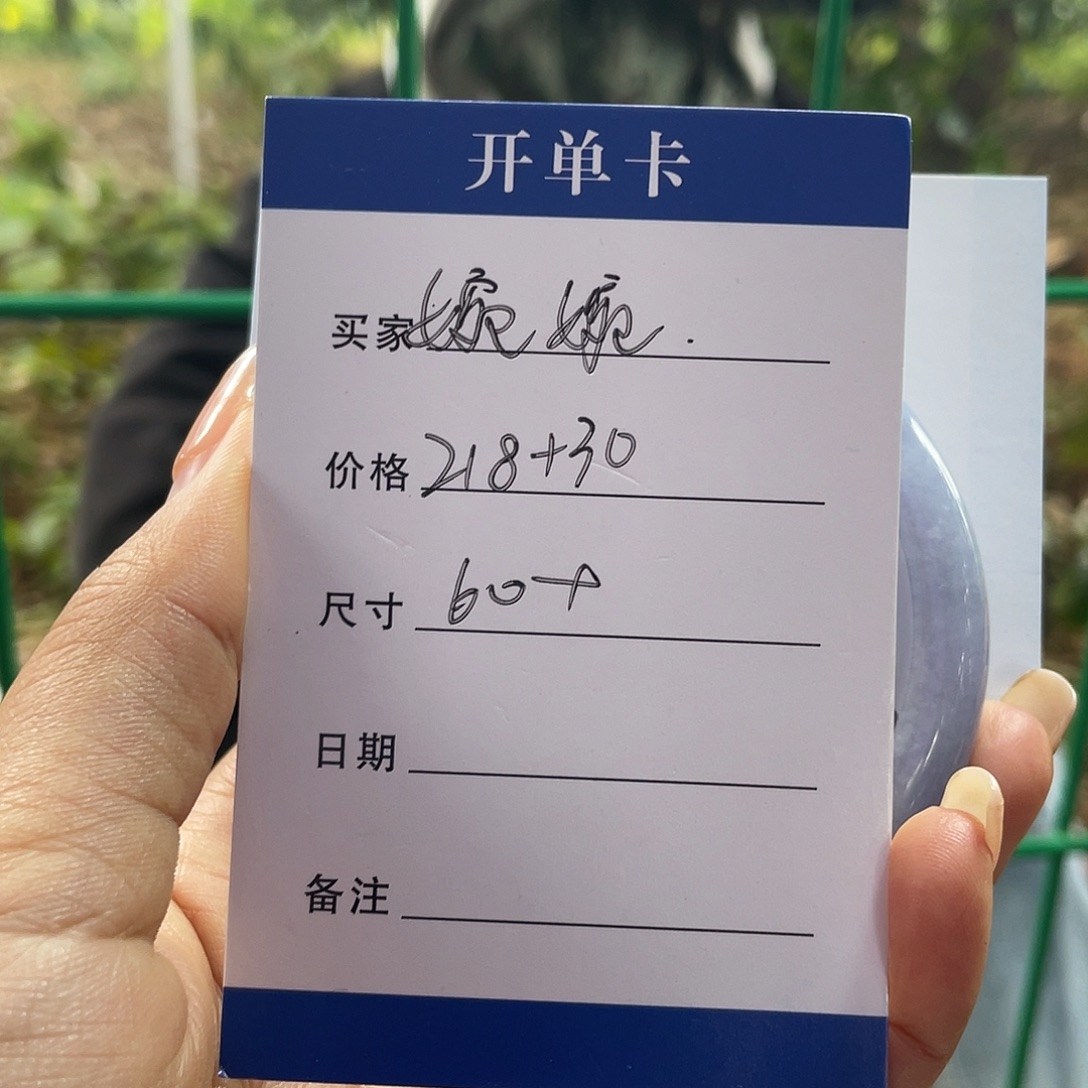 开单卡
买家 婉婉.
价格 218+30
尺寸 60+
日期
备注